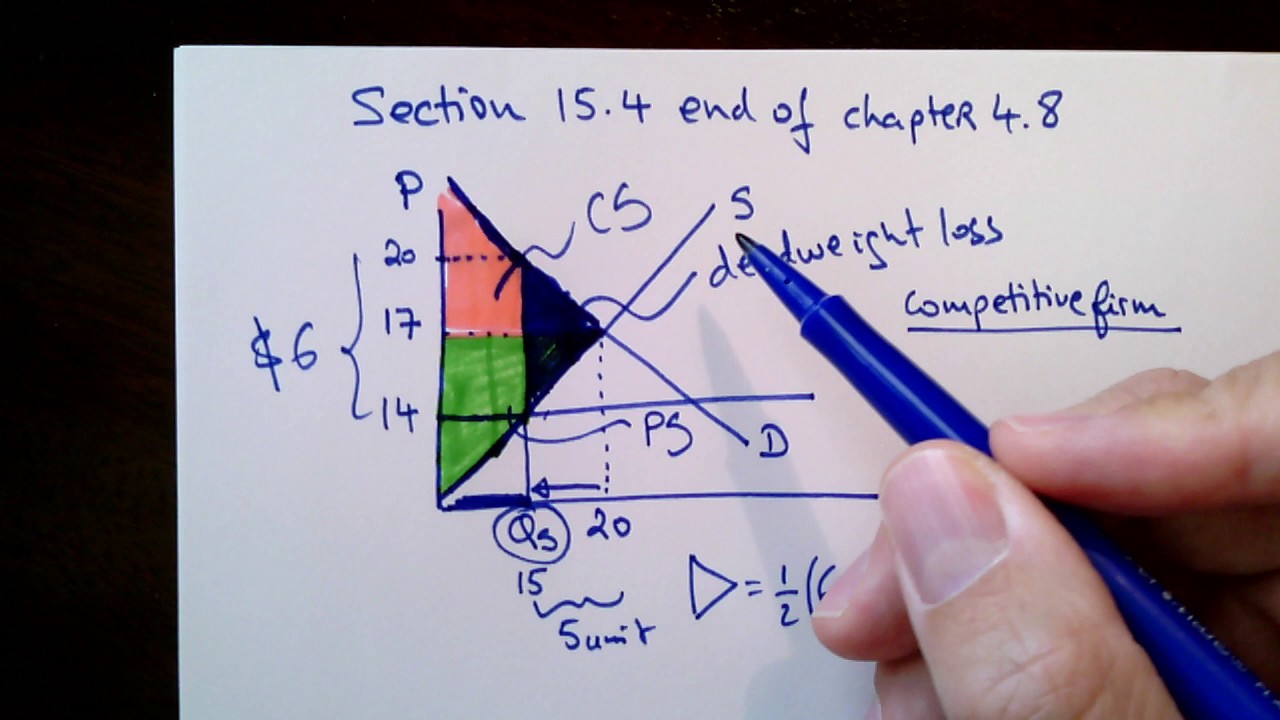 Section 15.4 end of chapter 4.8
P
CS
S
20
deadweight loss
competitive firm
17
$6
14
PS
D
Qs
20
15
5 unit
= 1/2 (6